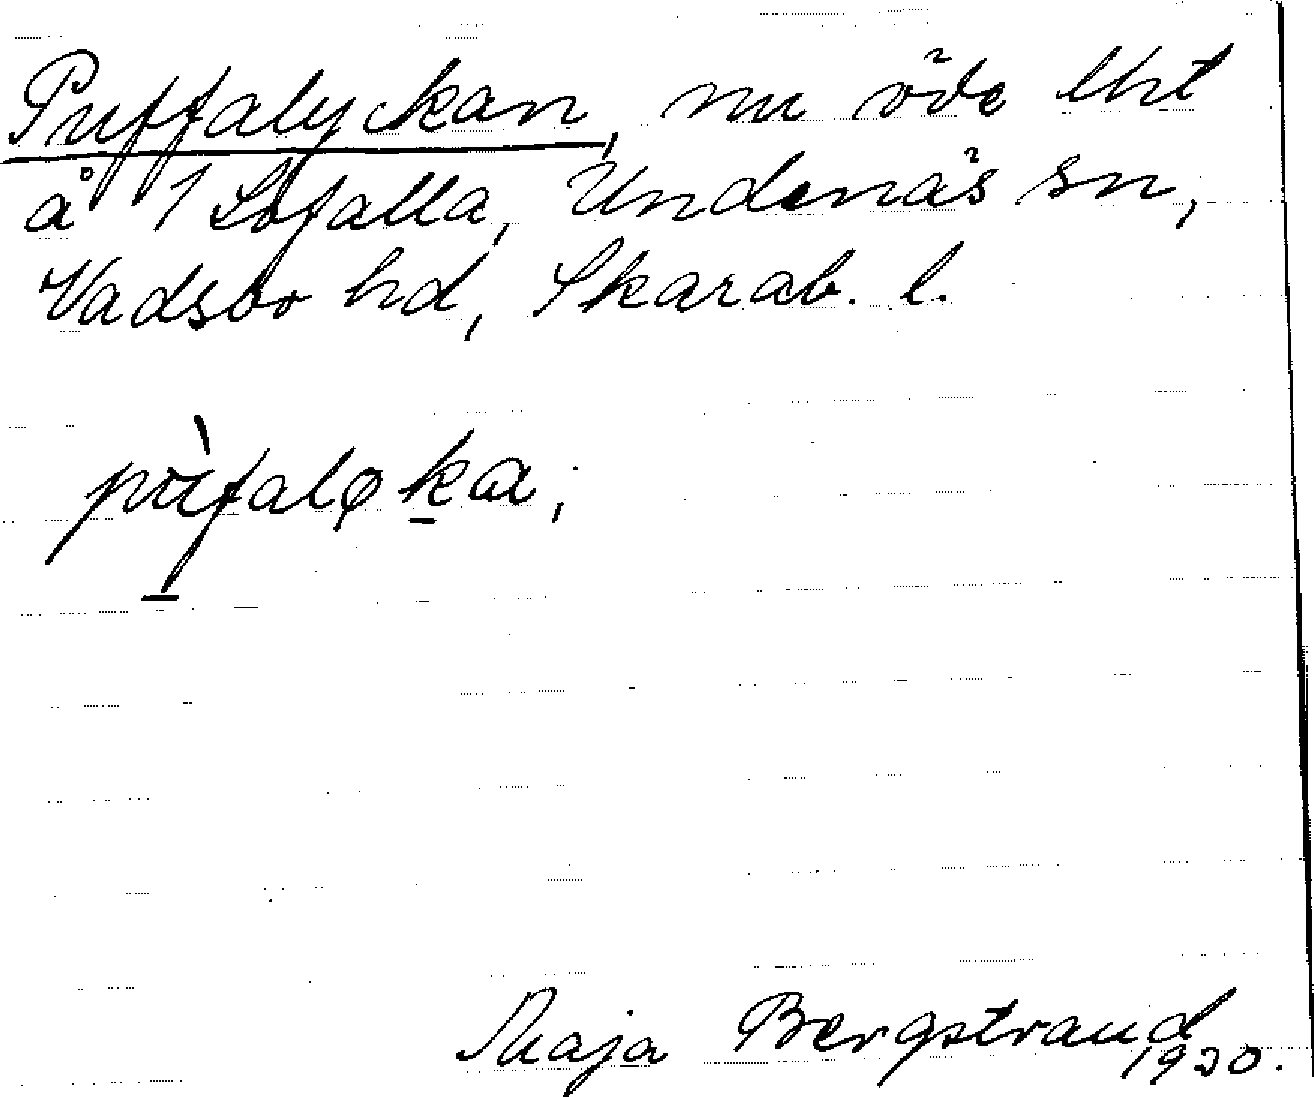 Puffalyckan, nu öde lht
å 1 Sofalla, Undenäs sn,
Vadsbo hd, Skarab. l.
pùfaløka,
Maja Bergstrand
1930.